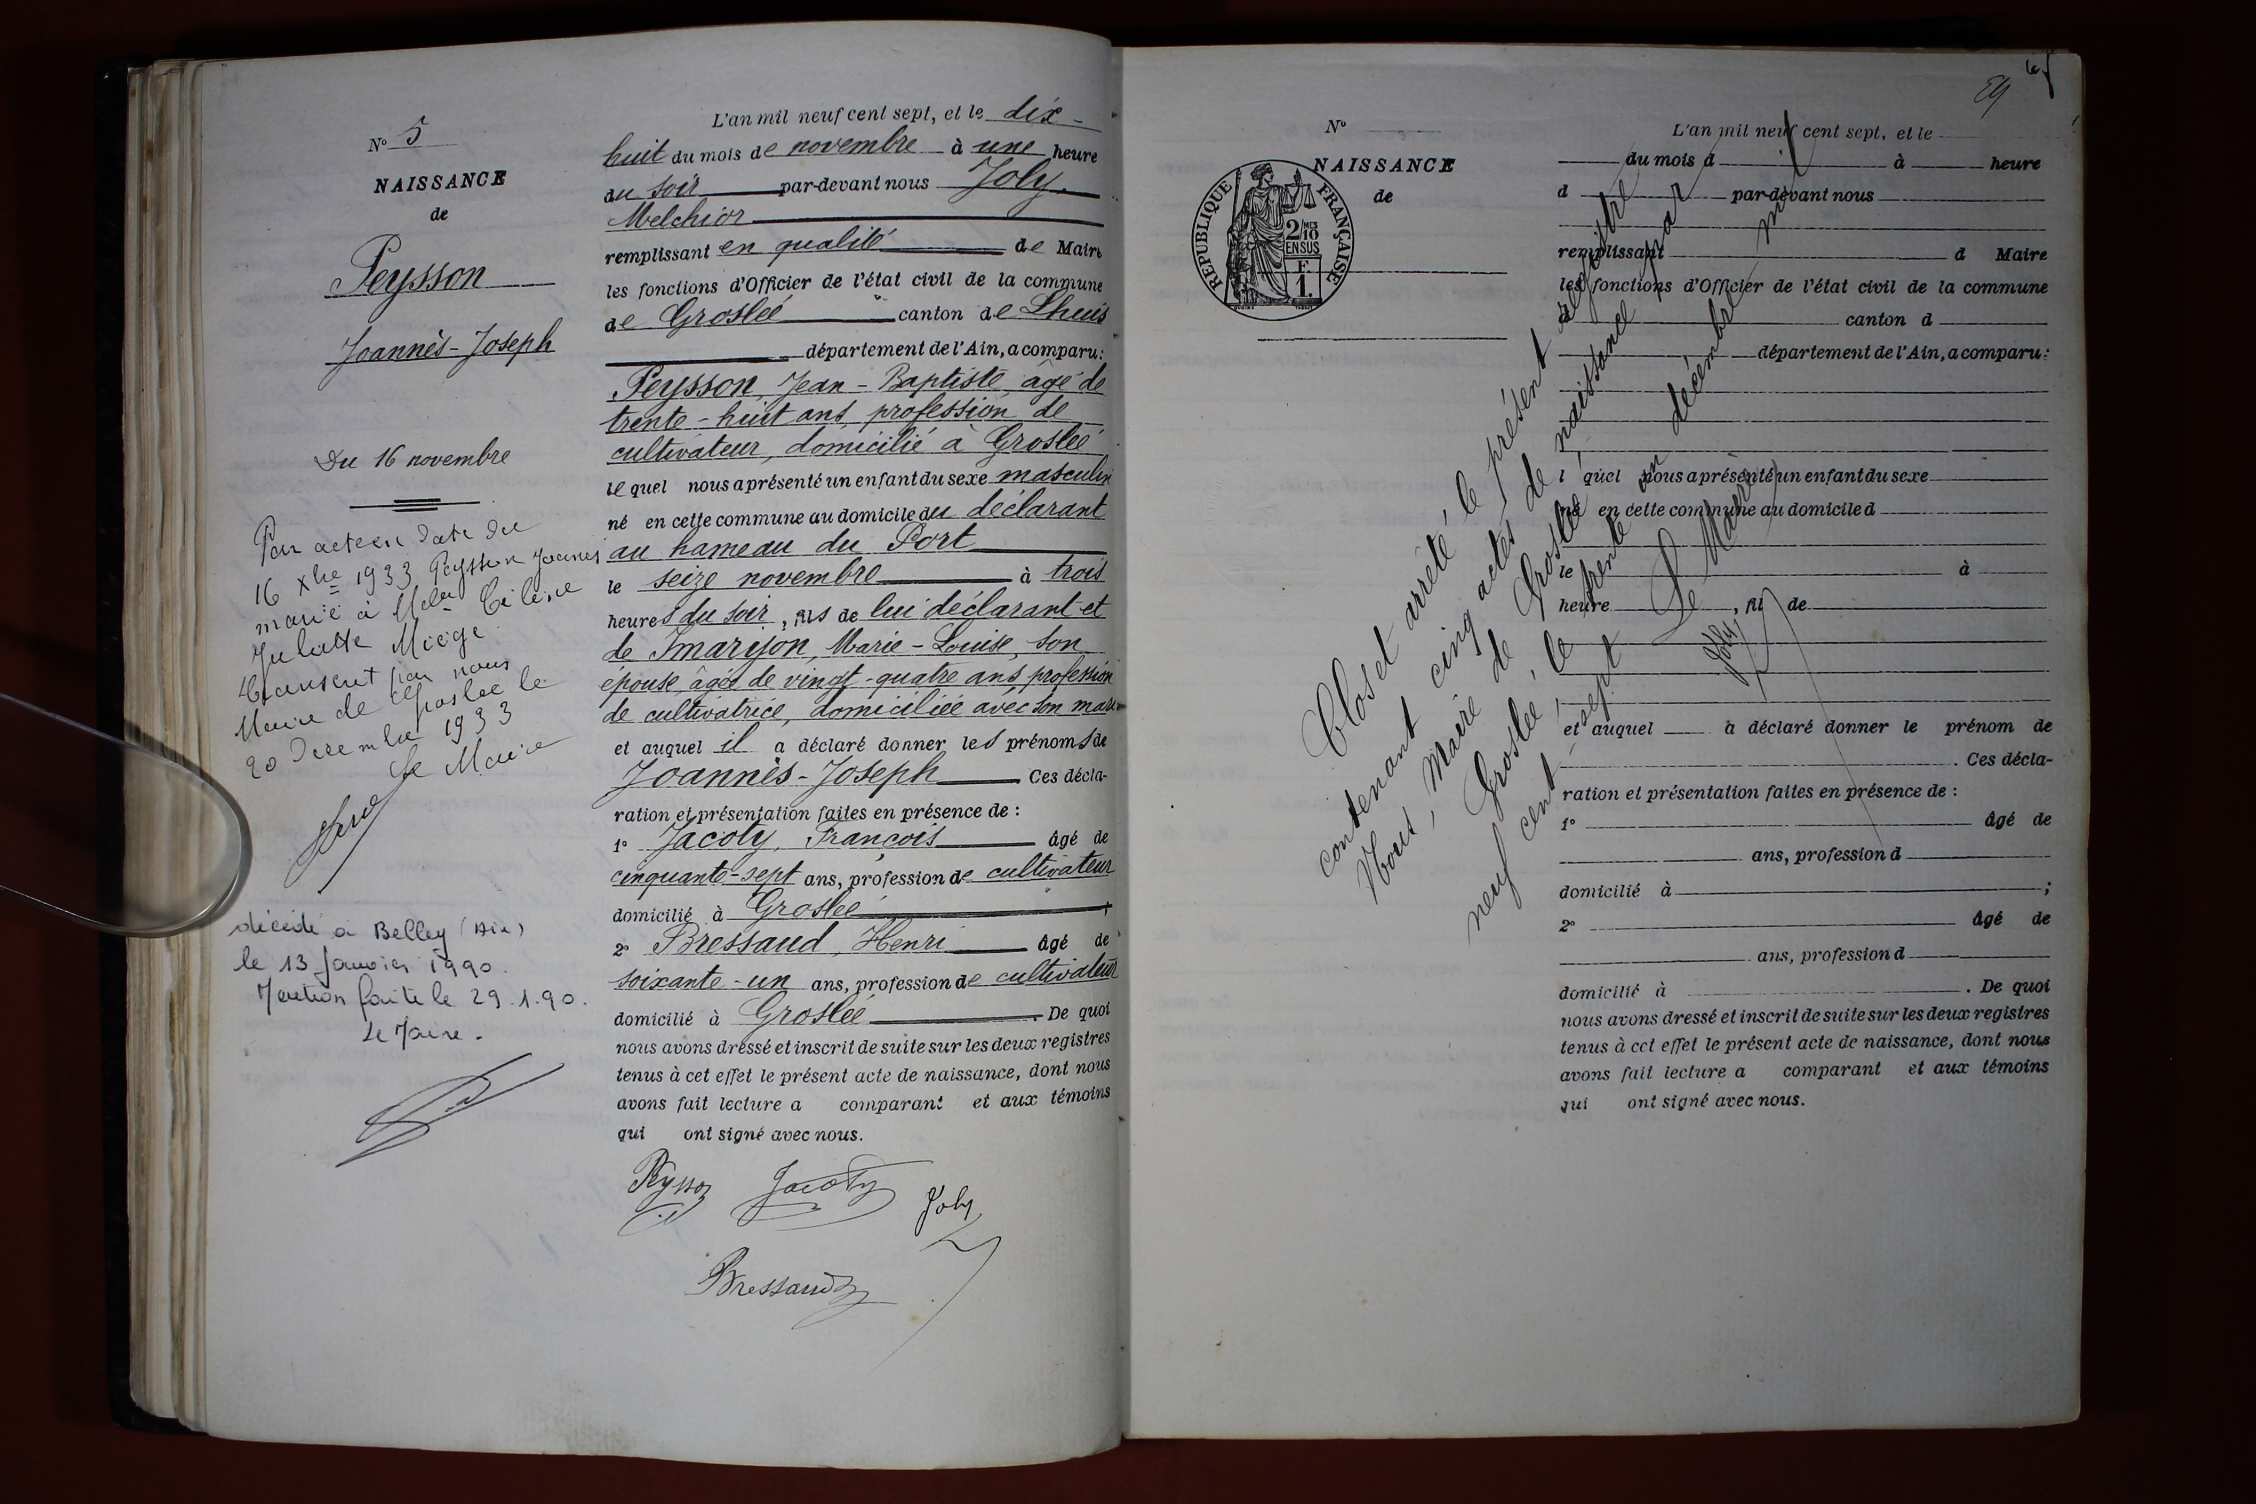 N° 5
NAISSANCE
de
Peysson
Joannès-Joseph
Du 16 novembre
Par acte en date du
16 Xbre 1933 Peysson Joannès
marié à Melle Céline
Juliette Miège
Transcrit par nous
Maire de Groslée le
20 Décembre 1933
Le Maire
décédé à Belley (Ain)
le 13 Janvier 1990.
Mention faite le 29.1.90.
Le Maire.
L'an mil neuf cent sept, et le dix-
huit du mois de novembre à une heure
du soir par-devant nous Joly,
Melchior
remplissant en qualité de Maire
les fonctions d'Officier de l'état civil de la commune
de Groslée canton de Lhuis
département de l'Ain, a comparu:
Peysson, Jean-Baptiste, âgé de
trente-huit ans, profession de
cultivateur, domicilié à Groslée
lequel nous a présenté un enfant du sexe masculin
né en cette commune au domicile du déclarant
au hameau du Port
le seize novembre à trois
heures du soir, fils de lui déclarant et
de Imarijon, Marie-Louise, son
épouse, âgée de vingt-quatre ans, profession
de cultivatrice, domiciliée avec son mari
et auquel il a déclaré donner les prénoms de
Joannès-Joseph Ces décla-
ration et présentation faites en présence de :
1° Jacoty, François âgé de
cinquante-sept ans, profession de cultivateur
domicilié à Groslée ;
2° Bressaud, Henri âgé de
soixante-un ans, profession de cultivateur
domicilié à Groslée . De quoi
nous avons dressé et inscrit de suite sur les deux registres
tenus à cet effet le présent acte de naissance, dont nous
avons fait lecture a comparant et aux témoins
qui ont signé avec nous.
Peysson Jacoty Joly
Bressaud
89
N°
NAISSANCE
de
RÉPUBLIQUE FRANÇAISE
2/10 MES
EN SUS
F.
1.
L'an mil neuf cent sept, et le
du mois d à heure
d par-devant nous
remplissant d Maire
les fonctions d'Officier de l'état civil de la commune
d canton d
département de l'Ain, a comparu:
l quel nous a présenté un enfant du sexe
né en cette commune au domicile d
le à
heure , fil de
et auquel a déclaré donner le prénom de
. Ces décla-
ration et présentation faites en présence de :
1° âgé de
ans, profession d
domicilié à ;
2° âgé de
ans, profession d
domicilié à . De quoi
nous avons dressé et inscrit de suite sur les deux registres
tenus à cet effet le présent acte de naissance, dont nous
avons fait lecture a comparant et aux témoins
qui ont signé avec nous.
Clos et arrêté le présent registre
contenant cinq actes de naissance par
Nous, Maire de Groslée
Groslée, le trente un décembre mil
neuf cent sept
Le Maire,
Joly